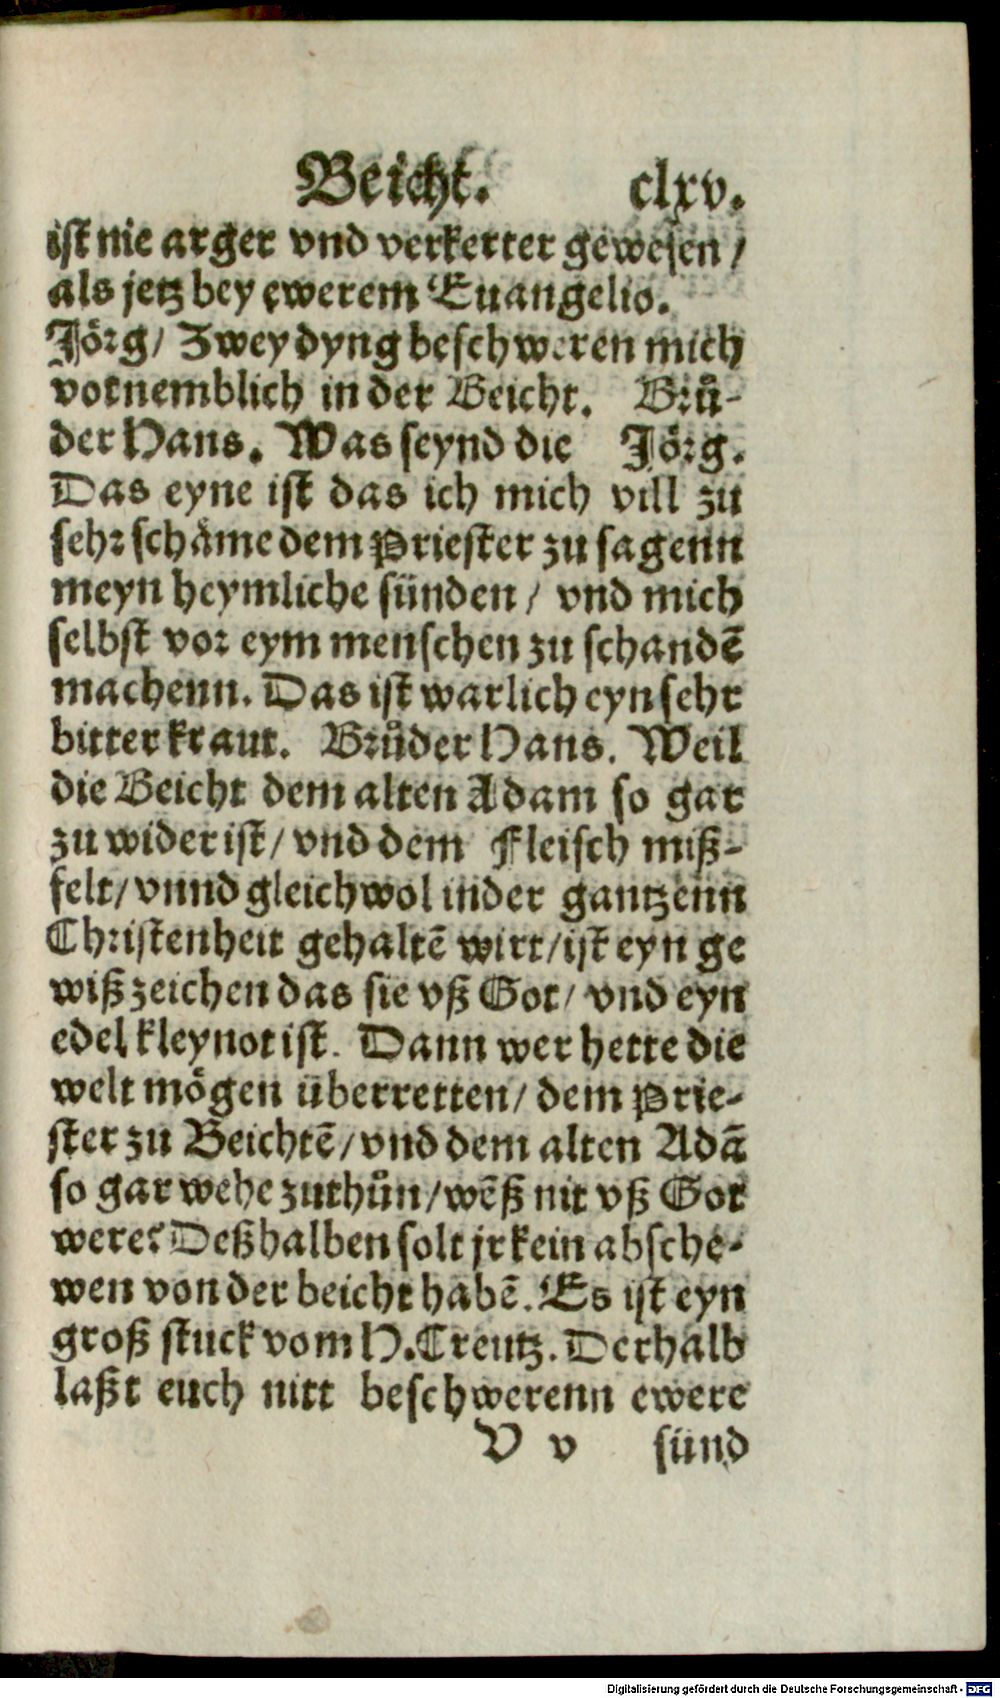 Beicht. clxv.
ist nie arger vnd verkerter gewesen /
als jetz bey ewerem Euangelio.
Jörg / Zwey dyng beschweren mich
vornemblich in der Beicht. Brů-
der Hans. Was seynd die Jörg.
Das eyne ist das ich mich vill zu
sehr schäme dem Priester zu sagenn
meyn heymliche sünden / vnd mich
selbst vor eym menschen zu schandẽ
machenn. Das ist warlich eyn sehr
bitter kraut. Brůder Hans. Weil
die Beicht dem alten Adam so gar
zu wider ist / vnd dem Fleisch miß-
felt / vnnd gleichwol in der gantzenn
Christenheit gehaltẽ wirt / ist eyn ge
wiß zeichen das sie vß Got / vnd eyn
edel kleynot ist. Dann wer hette die
welt mögen überretten / dem Prie-
ster zu Beichtẽ / vnd dem alten Adã
so gar wehe zuthůn / wẽß nit vß Got
were? Deßhalben solt jr kein absche-
wen von der beicht habẽ. Es ist eyn
groß stuck vom H. Creutz. Derhalb
laßt euch nitt beschwerenn ewere
V v sünd
Digitalisierung gefördert durch die Deutsche Forschungsgemeinschaft - DFG